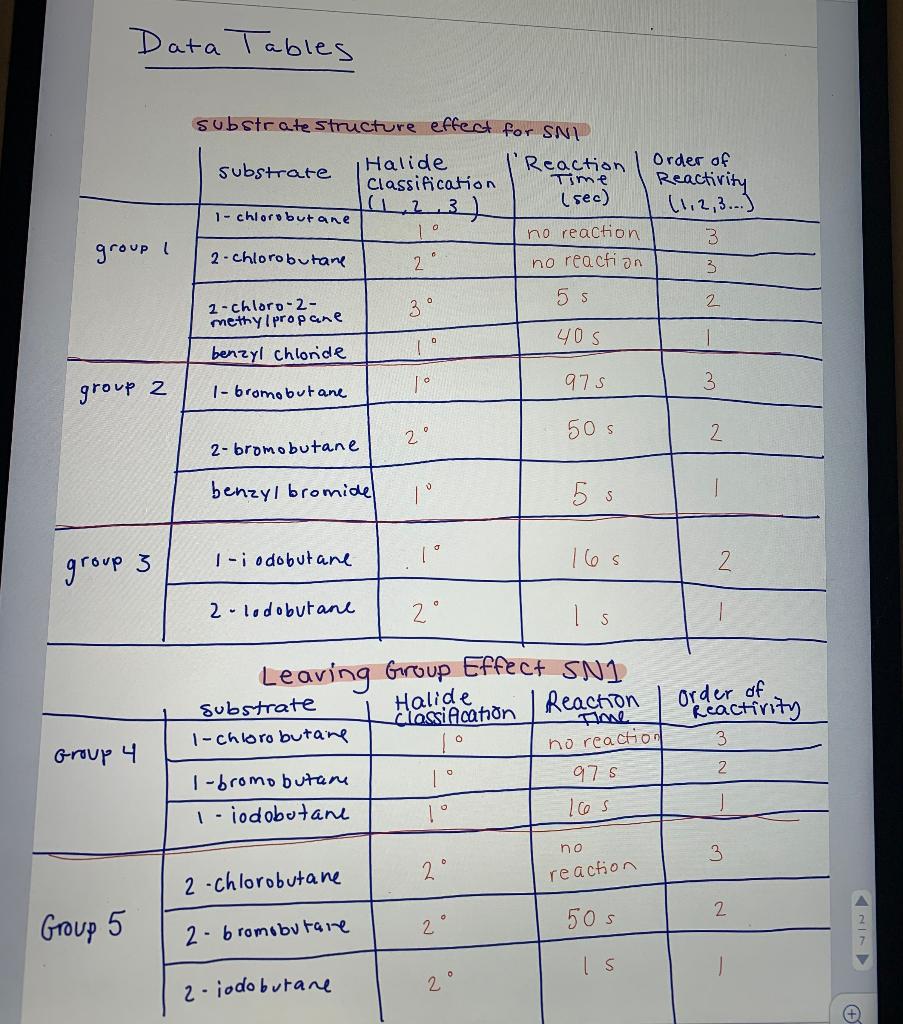 Data Tables
substrate structure effect for SN1
substrate
Halide
Classification
(1, 2, 3)
Reaction
Time
(sec)
Order of
Reactivity
(1, 2, 3...)
group 1
1-chlorobutane
1°
no reaction
3
2-chlorobutane
2°
no reaction
3
2-chloro-2-
methylpropane
3°
5 s
2
benzyl chloride
1°
40 s
1
group 2
1-bromobutane
1°
97 s
3
2-bromobutane
2°
50 s
2
benzyl bromide
1°
5 s
1
group 3
1-iodobutane
1°
16 s
2
2-Iodobutane
2°
1 s
1
Leaving Group Effect SN1
substrate
Halide
Classification
Reaction
Time
order of
Reactivity
Group 4
1-chlorobutane
1°
no reaction
3
1-bromobutane
1°
97 s
2
1-iodobutane
1°
16 s
1
Group 5
2-chlorobutane
2°
no
reaction
3
2-bromobutane
2°
50 s
2
2-iodobutane
2°
1 s
1
2
7